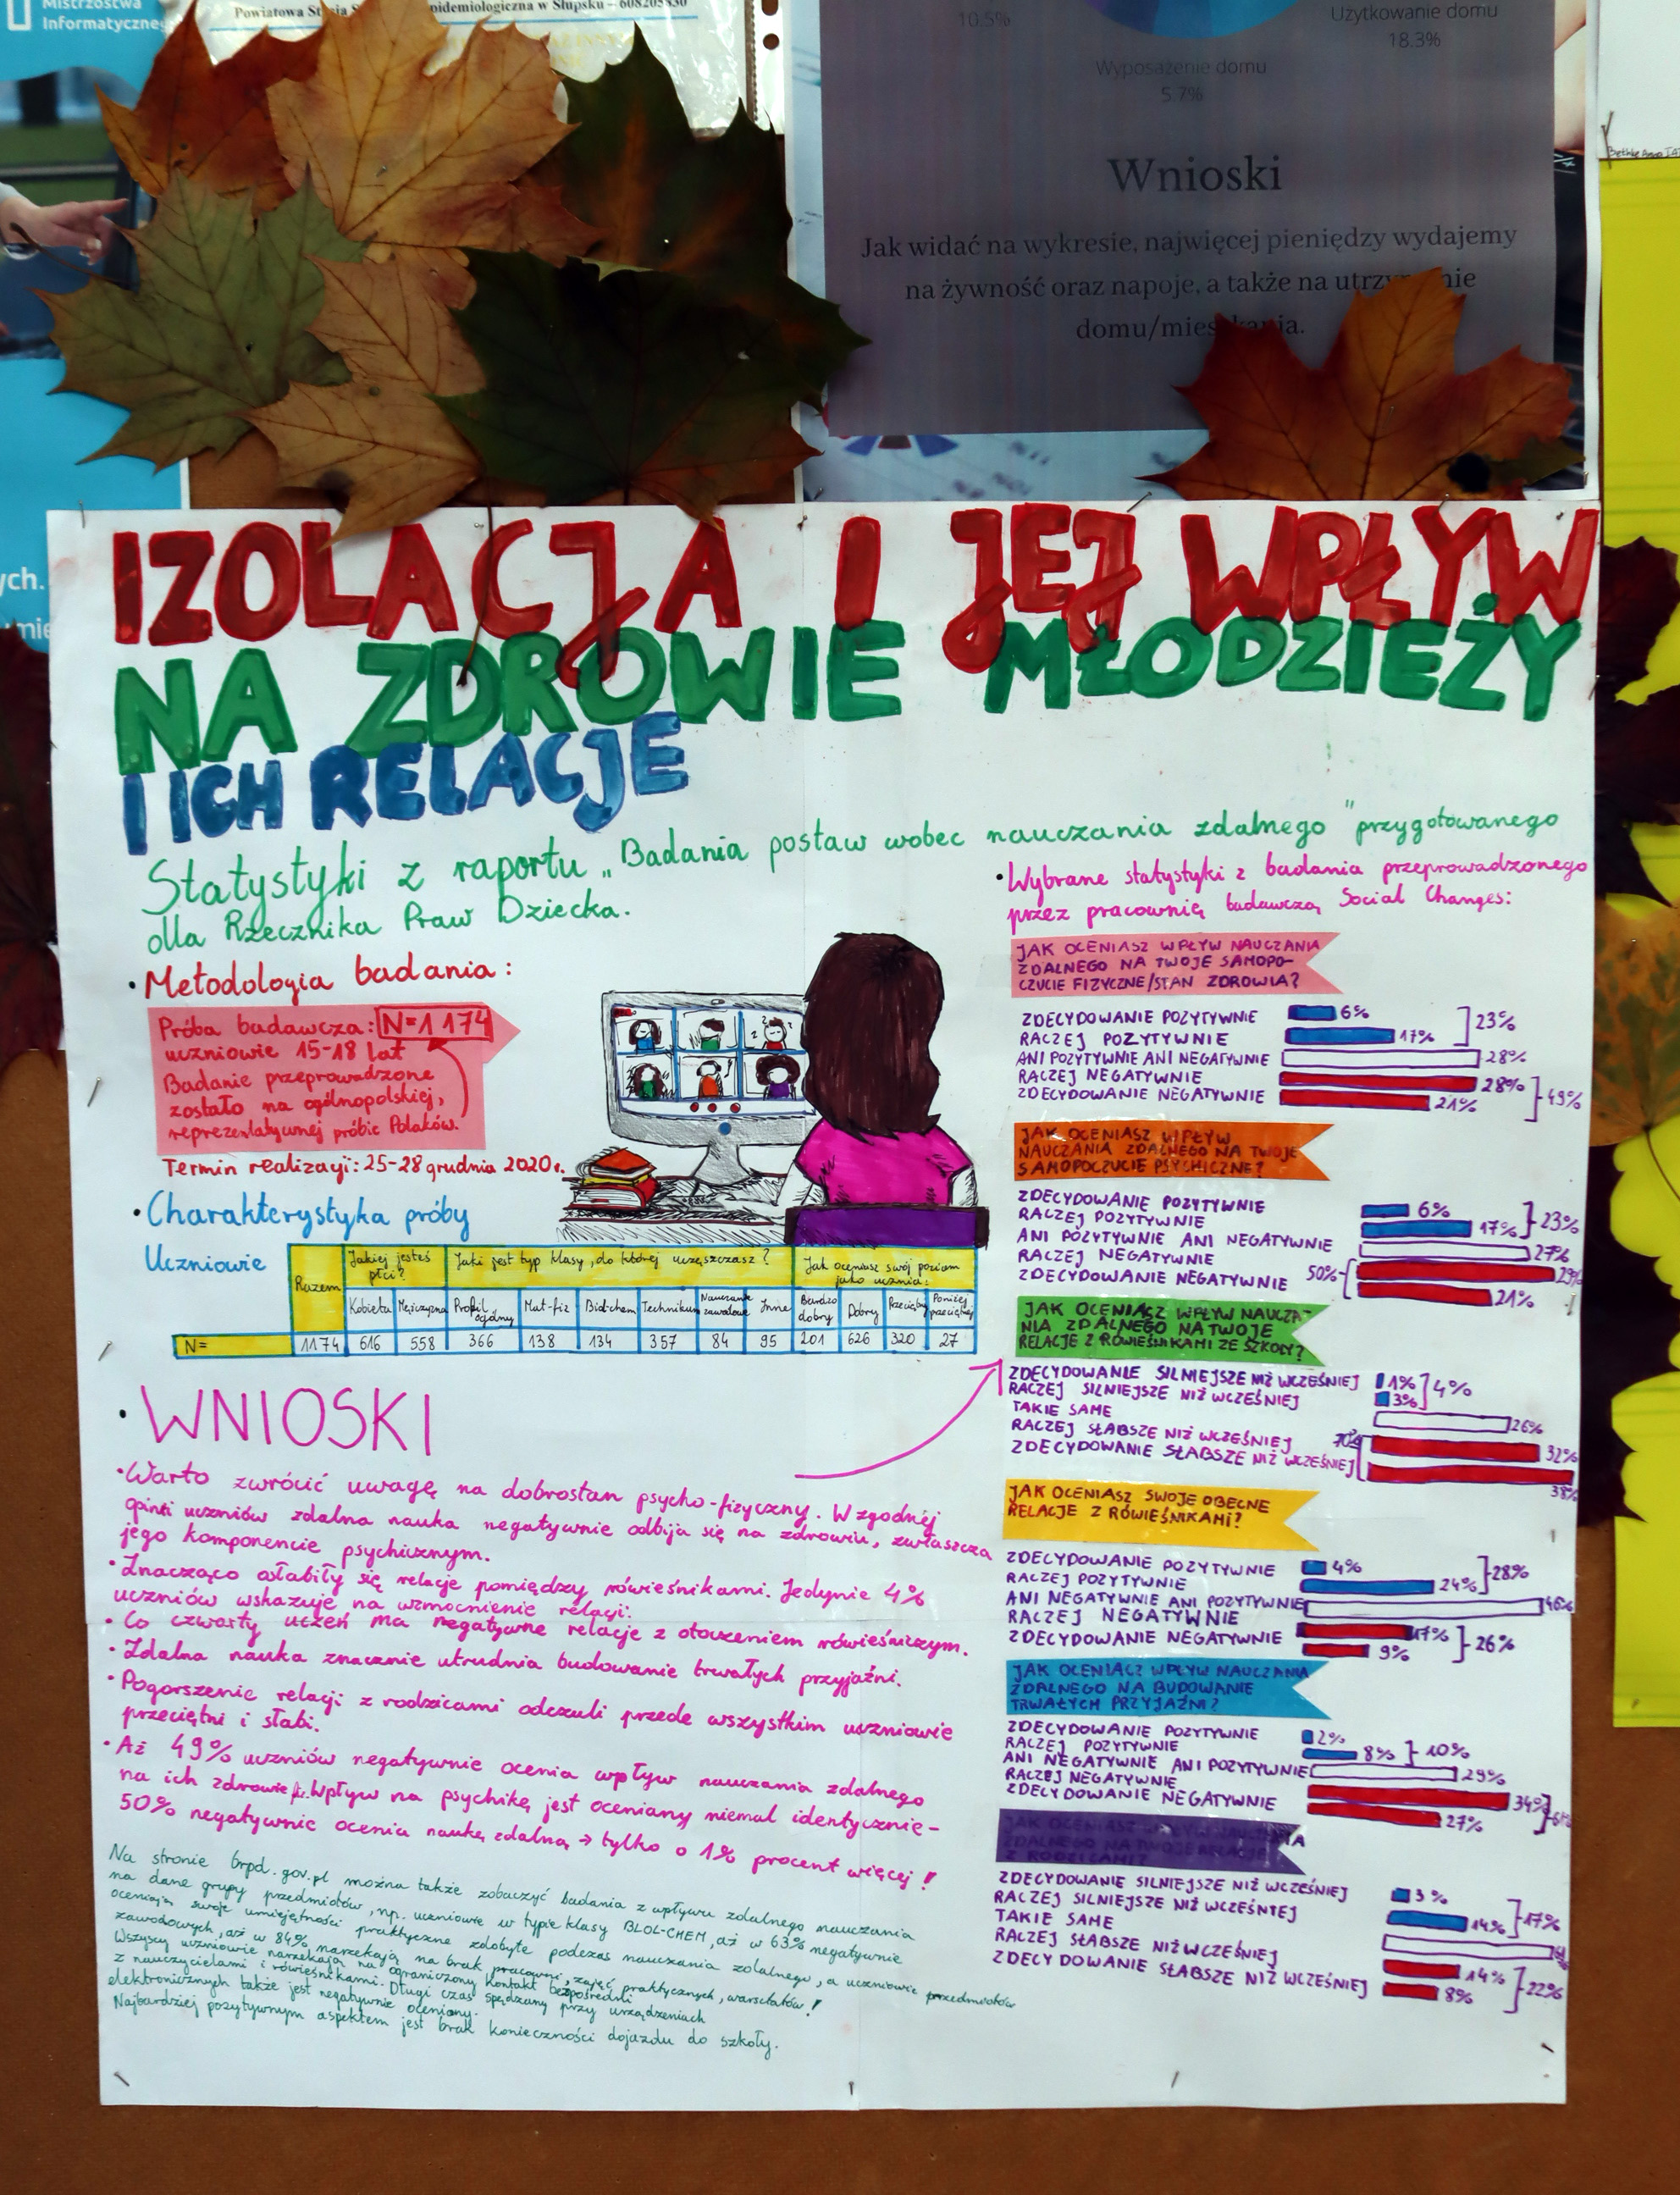 Mistrzostwa
Informatyczne
Powiatowa St
pidemiologiczna w Słupsku – 608205830
10.5%
Użytkowanie domu
18.3%
Wyposażenie domu
5.7%
Wnioski
Jak widać na wykresie, najwięcej pieniędzy wydajemy
na żywność oraz napoje, a także na
domu/
ych.
IZOLACJA I JEJ WPŁYW
NA ZDROWIE MŁODZIEŻY
I ICH RELACJE
Statystyki z raportu „Badania postaw wobec nauczania zdalnego" przygotowanego
dla Rzecznika Praw Dziecka.
• Metodologia badania:
Próba badawcza: N=1174
uczniowie 15-18 lat
Badanie przeprowadzone
zostało na ogólnopolskiej,
reprezentatywnej próbie Polaków.
Termin realizacji: 25-28 grudnia 2020r.
• Charakterystyka próby
Uczniowie
Razem
Jakiej jesteś płci?
Jaki jest typ klasy, do której uczęszczasz?
Jak oceniasz swój poziom jako ucznia:
Kobieta Mężczyzna Profil ogólny Mat-fiz Biol-chem Technikum Nauczanie zawodowe Inne Bardzo dobry Dobry Przeciętny Poniżej przeciętnej
N= 1174 616 558 366 138 134 357 84 95 201 626 320 27
• WNIOSKI
• Warto zwrócić uwagę na dobrostan psycho-fizyczny. W zgodnej
opinii uczniów zdalna nauka negatywnie odbija się na zdrowiu, zwłaszcza
jego komponencie psychicznym.
• Znacząco osłabiły się relacje pomiędzy rówieśnikami. Jedynie 4%
uczniów wskazuje na wzmocnienie relacji.
• Co czwarty uczeń ma negatywne relacje z otoczeniem rówieśniczym.
• Zdalna nauka znacznie utrudnia budowanie trwałych przyjaźni.
• Pogorszenie relacji z rodzicami odczuli przede wszystkim uczniowie
przeciętni i słabi.
• Aż 49% uczniów negatywnie ocenia wpływ nauczania zdalnego
na ich zdrowie. Wpływ na psychikę jest oceniany niemal identycznie -
50% negatywnie ocenia naukę zdalną → tylko o 1% procent więcej!
Na stronie brpd.gov.pl można także zobaczyć badania z wpływu zdalnego nauczania
na dane grupy przedmiotów, np. uczniowie w typie klasy BLOL-CHEM, aż w 63% negatywnie
oceniają swoje umiejętności praktyczne zdobyte podczas nauczania zdalnego, a uczniowie przedmiotów
zawodowych, aż w 84% narzekają na brak pracowni, zajęć praktycznych, warsztatów!
Wszyscy uczniowie narzekają na ograniczony kontakt bezpośredni
z nauczycielami i rówieśnikami. Długi czas spędzany przy urządzeniach
elektronicznych także jest negatywnie oceniany.
Najbardziej pozytywnym aspektem jest brak konieczności dojazdu do szkoły.
• Wybrane statystyki z badania przeprowadzonego
przez pracownię badawczą Social Changes:
JAK OCENIASZ WPŁYW NAUCZANIA
ZDALNEGO NA TWOJE SAMOPO-
CZUCIE FIZYCZNE/STAN ZDROWIA?
ZDECYDOWANIE POZYTYWNIE 6%
RACZEJ POZYTYWNIE 17% 23%
ANI POZYTYWNIE ANI NEGATYWNIE 28%
RACZEJ NEGATYWNIE 28%
ZDECYDOWANIE NEGATYWNIE 21% 49%
JAK OCENIASZ WPŁYW
NAUCZANIA ZDALNEGO NA TWOJE
SAMOPOCZUCIE PSYCHICZNE?
ZDECYDOWANIE POZYTYWNIE 6%
RACZEJ POZYTYWNIE 17% 23%
ANI POZYTYWNIE ANI NEGATYWNIE 27%
RACZEJ NEGATYWNIE 29%
ZDECYDOWANIE NEGATYWNIE 50% 21%
JAK OCENIASZ WPŁYW NAUCZA-
NIA ZDALNEGO NA TWOJE
RELACJE Z RÓWIEŚNIKAMI ZE SZKOŁY?
ZDECYDOWANIE SILNIEJSZE NIŻ WCZEŚNIEJ 1%
RACZEJ SILNIEJSZE NIŻ WCZEŚNIEJ 3% 4%
TAKIE SAME 26%
RACZEJ SŁABSZE NIŻ WCZEŚNIEJ 70% 32%
ZDECYDOWANIE SŁABSZE NIŻ WCZEŚNIEJ 38%
JAK OCENIASZ SWOJE OBECNE
RELACJE Z RÓWIEŚNIKAMI?
ZDECYDOWANIE POZYTYWNIE 4%
RACZEJ POZYTYWNIE 24% 28%
ANI NEGATYWNIE ANI POZYTYWNIE 46%
RACZEJ NEGATYWNIE 17%
ZDECYDOWANIE NEGATYWNIE 9% 26%
JAK OCENIACZ WPŁYW NAUCZANIA
ZDALNEGO NA BUDOWANIE
TRWAŁYCH PRZYJAŹNI?
ZDECYDOWANIE POZYTYWNIE 2%
RACZEJ POZYTYWNIE 8% 10%
ANI NEGATYWNIE ANI POZYTYWNIE 29%
RACZEJ NEGATYWNIE 34%
ZDECYDOWANIE NEGATYWNIE 27% 61%
JAK OCENIASZ WPŁYW NAUCZANIA
ZDALNEGO NA TWOJE RELACJE
Z RODZICAMI?
ZDECYDOWANIE SILNIEJSZE NIŻ WCZEŚNIEJ 3%
RACZEJ SILNIEJSZE NIŻ WCZEŚNIEJ 14% 17%
TAKIE SAME
RACZEJ SŁABSZE NIŻ WCZEŚNIEJ 14%
ZDECYDOWANIE SŁABSZE NIŻ WCZEŚNIEJ 8% 22%